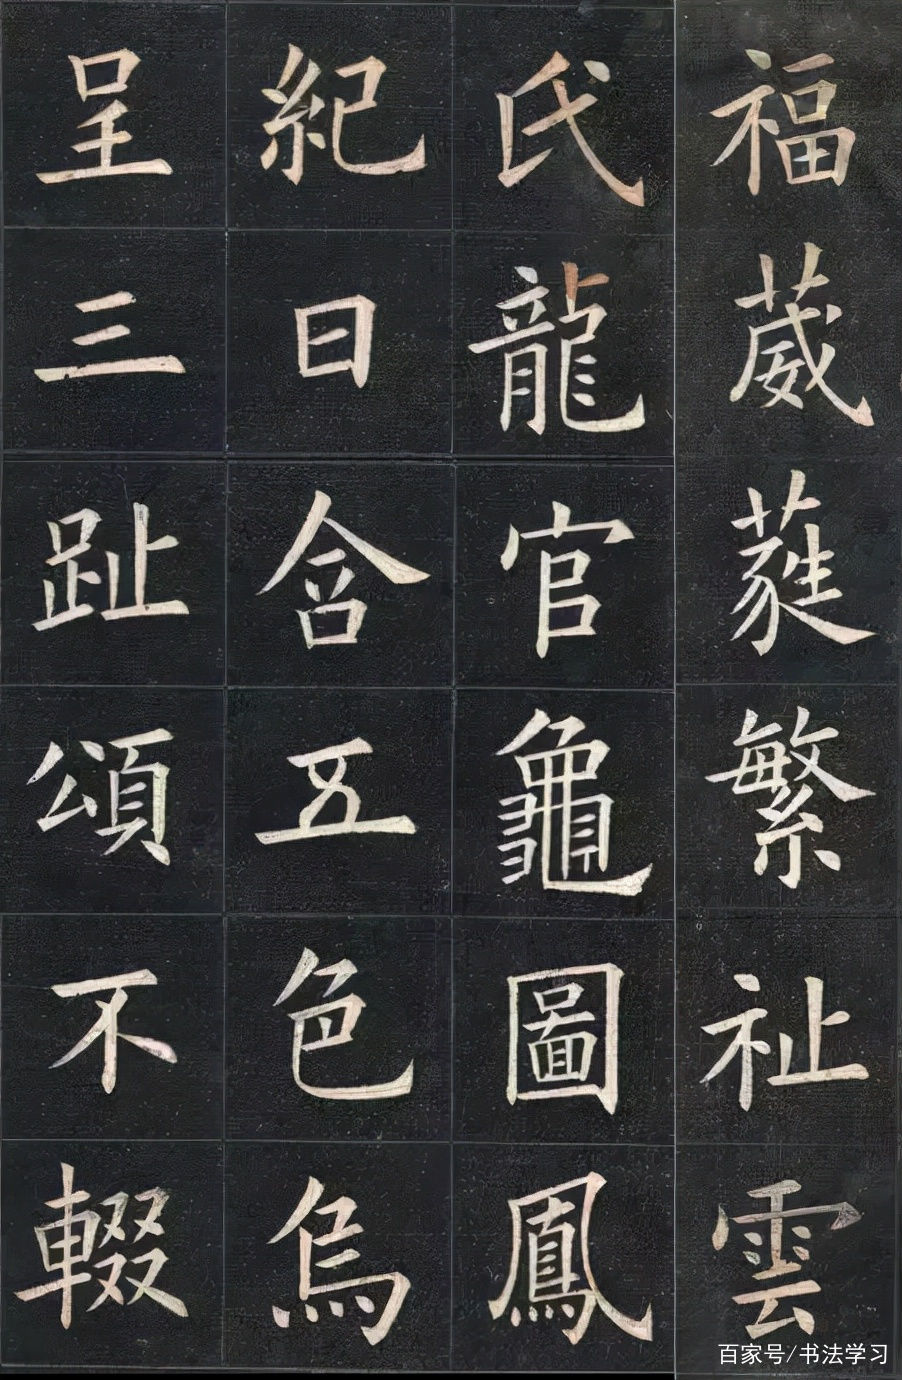 福葳蕤繁祉雲
氏龍官龜圖鳳
紀日含五色烏
呈三趾頌不輟
百家号/书法学习